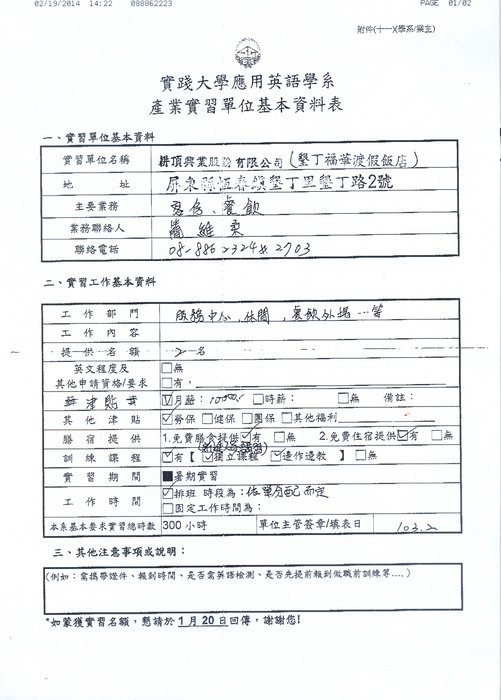 02/19/2014 14:22 088862223 PAGE 01/02
附件(十一)(學系/業主)
實踐大學應用英語學系
產業實習單位基本資料表
一、實習單位基本資料
實習單位名稱 耕頂興業股份有限公司(墾丁福華渡假飯店)
地 址 屏東縣恆春鎮墾丁里墾丁路2號
主要業務 客房、餐飲
業務聯絡人
聯絡電話 08-886-2324# 2703
二、實習工作基本資料
工作部門 服務中心、休閒、餐飲外場…等
工作內容
提供名額 2 名
英文程度及 □無
其他申請資格/要求 □有,
津貼 ☑月薪:10000 □時薪: □無 備註:
其他津貼 ☑勞保 □健保 □團保 □其他福利
膳宿提供 1.免費膳食提供☑有 □無 2.免費住宿提供☑有 □無
訓練課程 ☑有【☑獨立課程 ☑邊作邊教 】□無
實習期間 ■暑期實習
工作時間 ☑排班 時段為:依單位分配而定
□固定工作時間為:
本系基本要求實習總時數 300 小時 單位主管簽章/填表日 103.2
三、其他注意事項或說明:
(例如:需攜帶證件、報到時間、是否需英語檢測、是否先提前報到做職前訓練等....)
*如蒙獲實習名額,懇請於 1 月 20 日回傳,謝謝您!